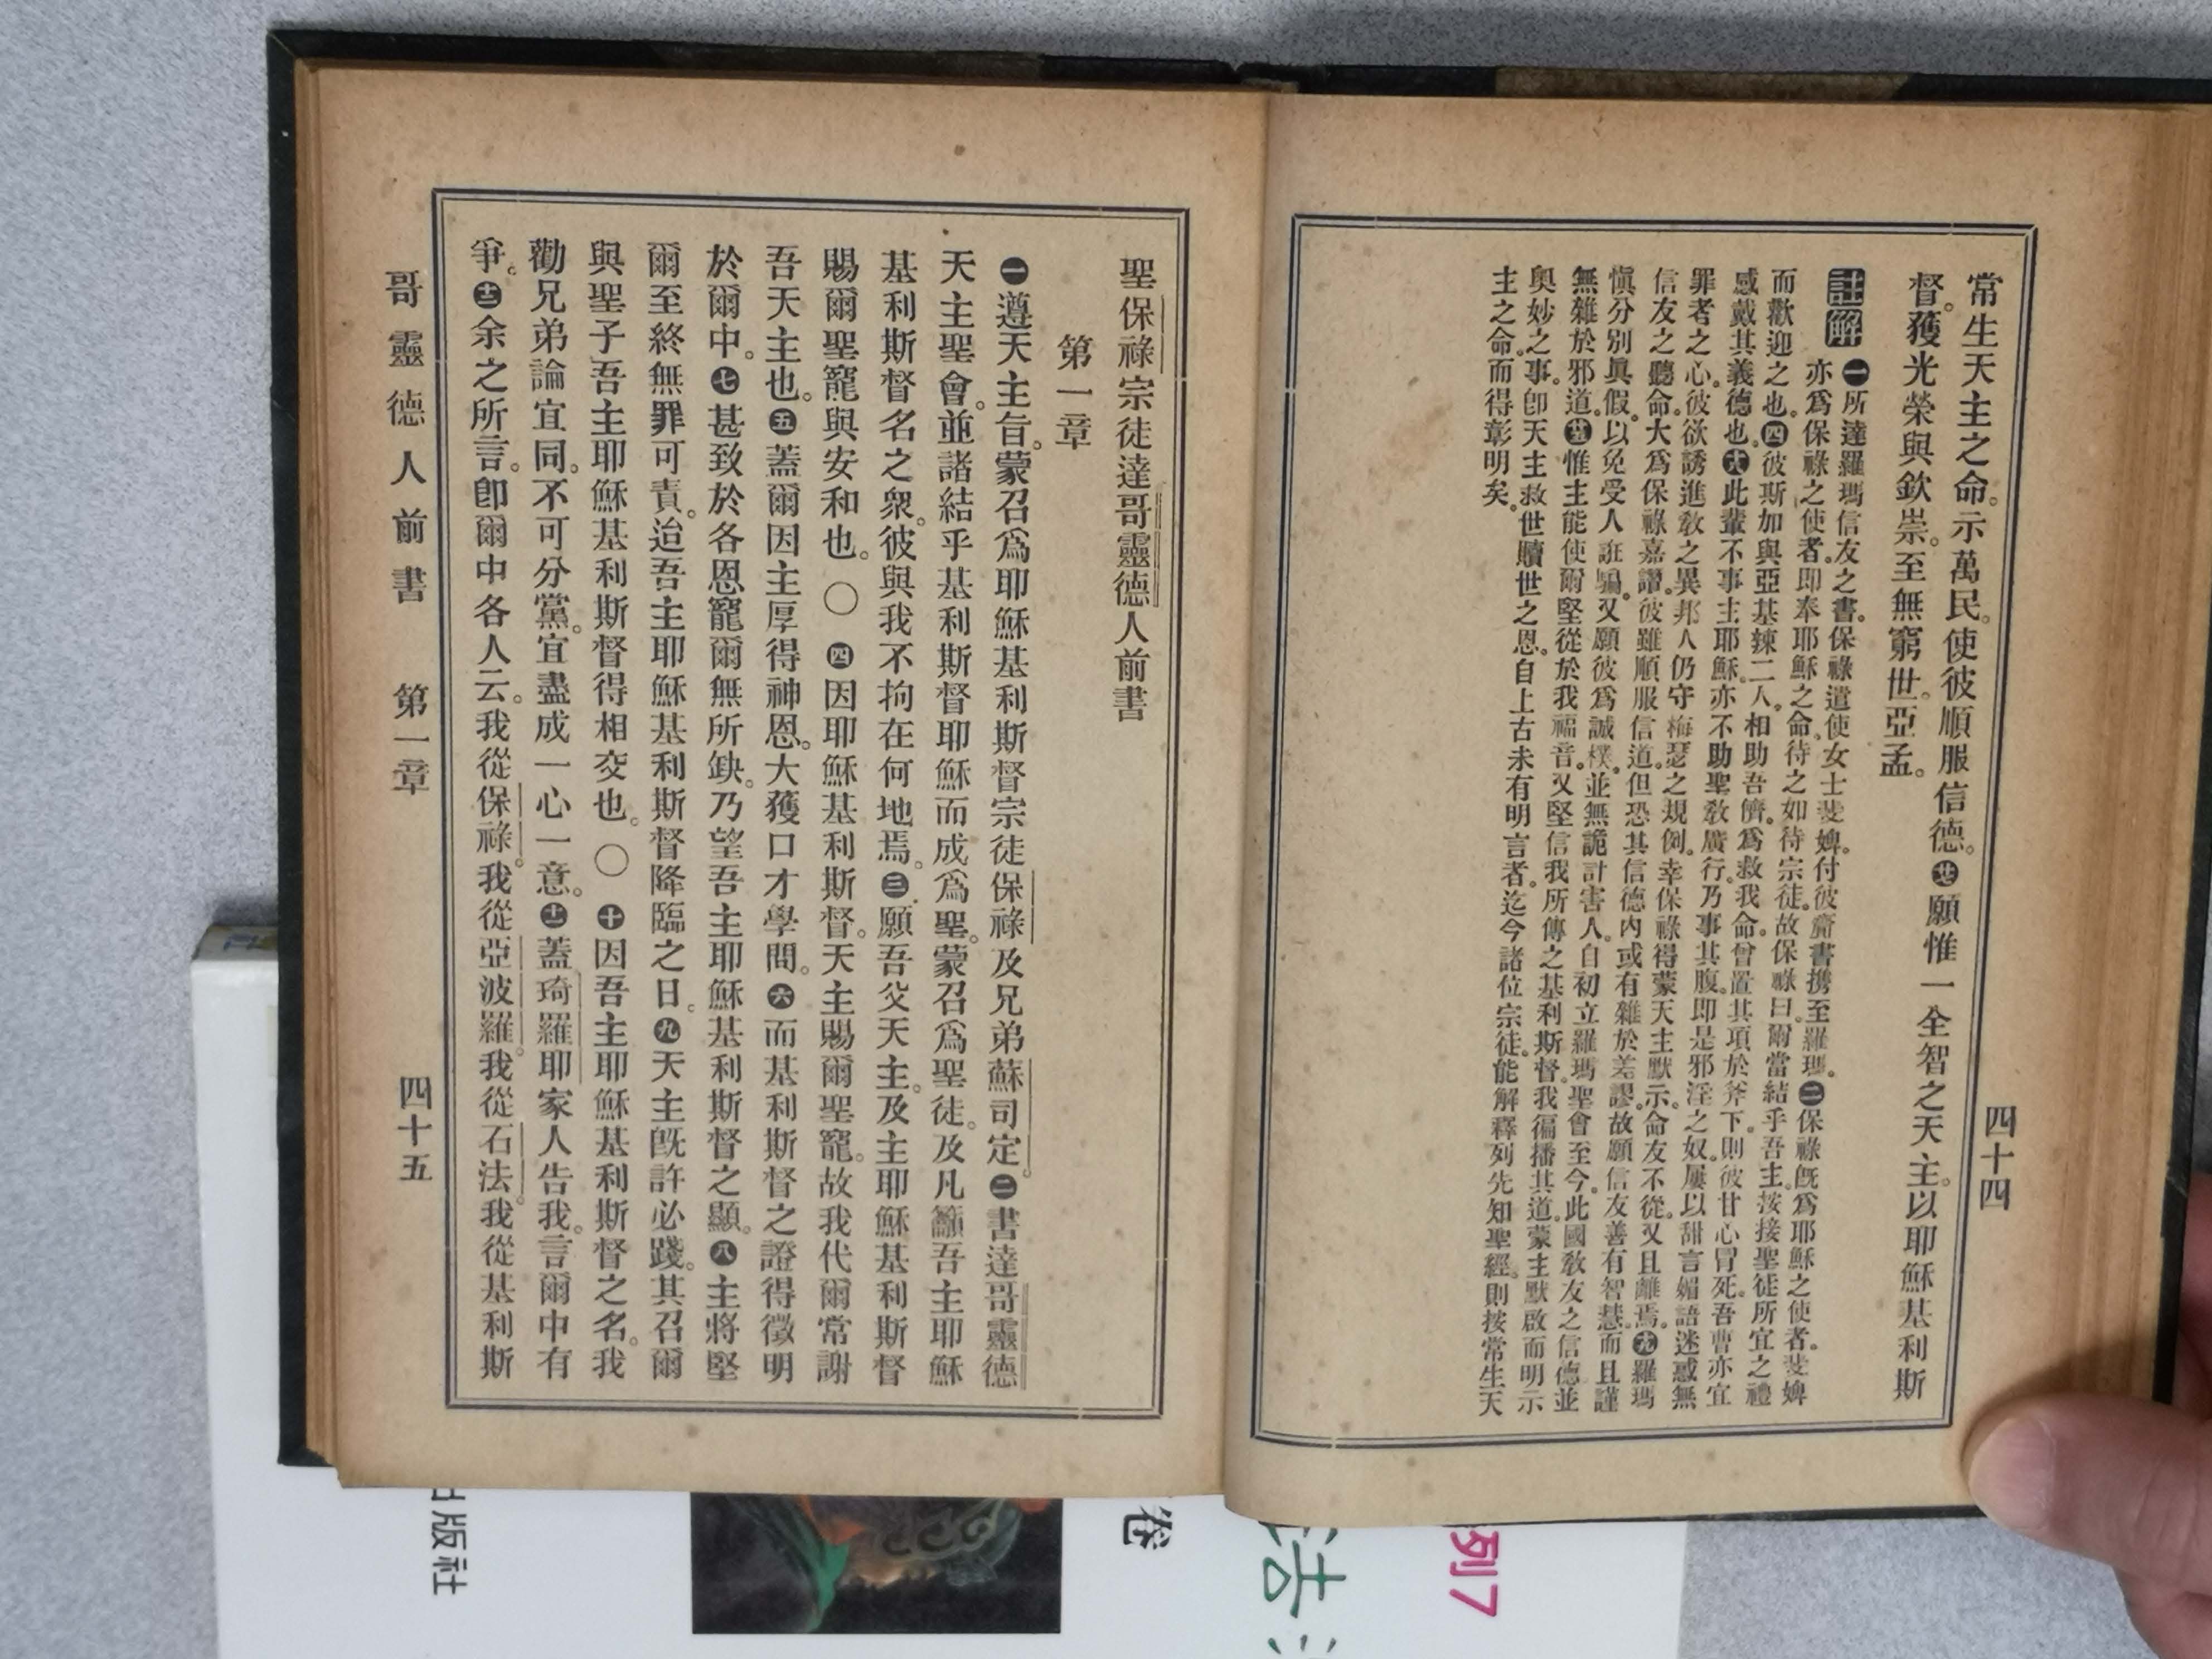 四十四
常生天主之命。示萬民。使彼順服信德。㊆願惟一全智之天主。以耶穌基利斯
督。獲光榮與欽崇。至無窮世。亞孟。
註解
㊀所達羅瑪信友之書。保祿遣使女士斐婢。付彼齎書攜至羅瑪。㊁保祿旣爲耶穌之使者。斐婢
亦爲保祿之使者。即奉耶穌之命。待之如待宗徒。故保祿曰。爾當結乎吾主。按接聖徒所宜之禮
而歡迎之也。㊃彼斯加與亞基辣二人。相助吾儕。爲救我命。曾置其項於斧下。則彼甘心冒死。吾曹亦宜
感戴其義德也。⑱此輩不事主耶穌。亦不助聖敎廣行。乃事其腹。即是邪淫之奴。屢以甜言媚語迷惑無
罪者之心。彼欲誘進敎之異邦人仍守梅瑟之規例。幸保祿得蒙天主默示。命友不從。又且離焉。⑲羅瑪
信友之聽命。大爲保祿嘉讚。彼雖順服信道。但恐其信德內或有雜於差謬。故願信友善有智慧。而且謹
愼分別眞假。以免受人誑騙。又願彼爲誠樸。並無詭計害人。自初立羅瑪聖會至今。此國敎友之信德並
無雜於邪道。㉕惟主能使爾堅從於我福音。又堅信我所傳之基利斯督。我徧播其道。蒙主默啟而明示
奧妙之事。卽天主救世贖世之恩。自上古未有明言者。迄今諸位宗徒。能解釋列先知聖經。則按常生天
主之命。而得彰明矣。
聖保祿宗徒達哥靈德人前書
第一章
㊀遵天主旨。蒙召爲耶穌基利斯督宗徒保祿及兄弟蘇司定。㊁書達哥靈德
天主聖會。並諸結乎基利斯督耶穌而成爲聖。蒙召爲聖徒。及凡籲吾主耶穌
基利斯督名之衆。彼與我不拘在何地焉。㊂願吾父天主。及主耶穌基利斯督
賜爾聖寵與安和也。〇㊃因耶穌基利斯督。天主賜爾聖寵。故我代爾常謝
吾天主也。㊄蓋爾因主厚得神恩。大獲口才學問。㊅而基利斯督之證得徵明
於爾中。㊆甚致於各恩寵爾無所缺。乃望吾主耶穌基利斯督之顯。㊇主將堅
爾至終無罪可責。迨吾主耶穌基利斯督降臨之日。㊈天主旣許必踐。其召爾
與聖子吾主耶穌基利斯督得相交也。〇㊉因吾主耶穌基利斯督之名。我
勸兄弟論宜同。不可分黨。宜盡成一心一意。⑪蓋琦羅耶家人告我。言爾中有
爭。⑫余之所言。卽爾中各人云。我從保祿。我從亞波羅。我從石法。我從基利斯
哥靈德人前書　第一章　四十五
出版社
卷
法
列7